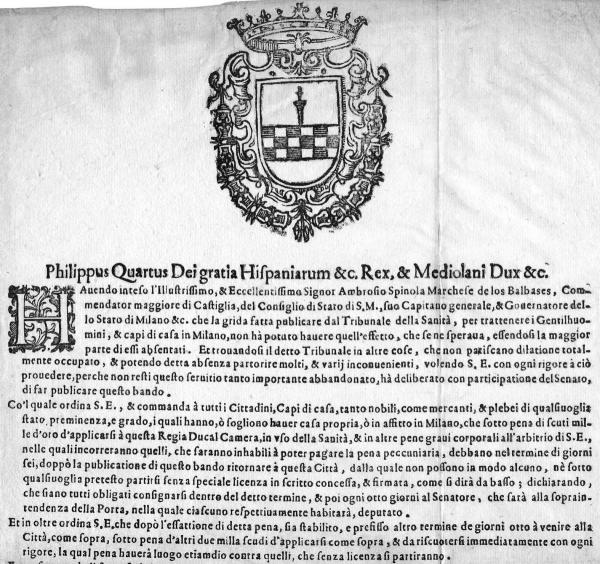 Philippus Quartus Dei gratia Hispaniarum &c. Rex, & Mediolani Dux &c.
HAuendo inteso l'Illustrissimo, & Eccellentissimo Signor Ambrosio Spinola Marchese de los Balbases, Com-
mendator maggiore di Castiglia, del Consiglio di Stato di S.M., suo Capitano generale, & Gouernatore del-
lo Stato di Milano &c. che la grida fatta publicare dal Tribunale della Sanità, per trattenere i Gentilhuo-
mini, & capi di casa in Milano, non hà potuto hauere quell'effetto, che se ne speraua, essendosi la maggior
parte di essi absentati. Et trouandosi il detto Tribunale in altre cose, che non patiscano dilatione total-
mente occupato, & potendo detta absenza partorire molti, & varij inconuenienti, volendo S. E. con ogni rigore à ciò
prouedere, perche non resti questo seruitio tanto importante abbandonato, hà deliberato con participatione del Senato,
di far publicare questo bando.
Co'l quale ordina S. E., & commanda à tutti i Cittadini, Capi di casa, tanto nobili, come mercanti, & plebei di qualsiuoglia
stato, preminenza, e grado, i quali hanno, ò sogliono hauer casa propria, ò in affitto in Milano, che sotto pena di scuti mil-
le d'oro d'applicarsi à questa Regia Ducal Camera, in vso della Sanità, & in altre pene graui corporali all'arbitrio di S.E.,
nelle quali incorreranno quelli, che saranno inhabili à poter pagare la pena peccuniaria, debbano nel termine di giorni
sei, doppò la publicatione di questo bando ritornare à questa Città, dalla quale non possono in modo alcuno, nè sotto
qualsiuoglia pretesto partirsi senza speciale licenza in scritto concessa, & firmata, come si dirà da basso; dichiarando,
che siano tutti obligati consignarsi dentro del detto termine, & poi ogni otto giorni al Senatore, che sarà alla soprain-
tendenza della Porta, nella quale ciascuno respettiuamente habitarà, deputato.
Et in oltre ordina S.E, che dopò l'essattione di detta pena, sia stabilito, e prefisso altro termine de giorni otto à venire alla
Città, come sopra, sotto pena d'altri due milla scudi d'applicarsi come sopra, & da riscuotersi immediatamente con ogni
rigore, la qual pena hauerà luogo etiamdio contra quelli, che senza licenza si partiranno.